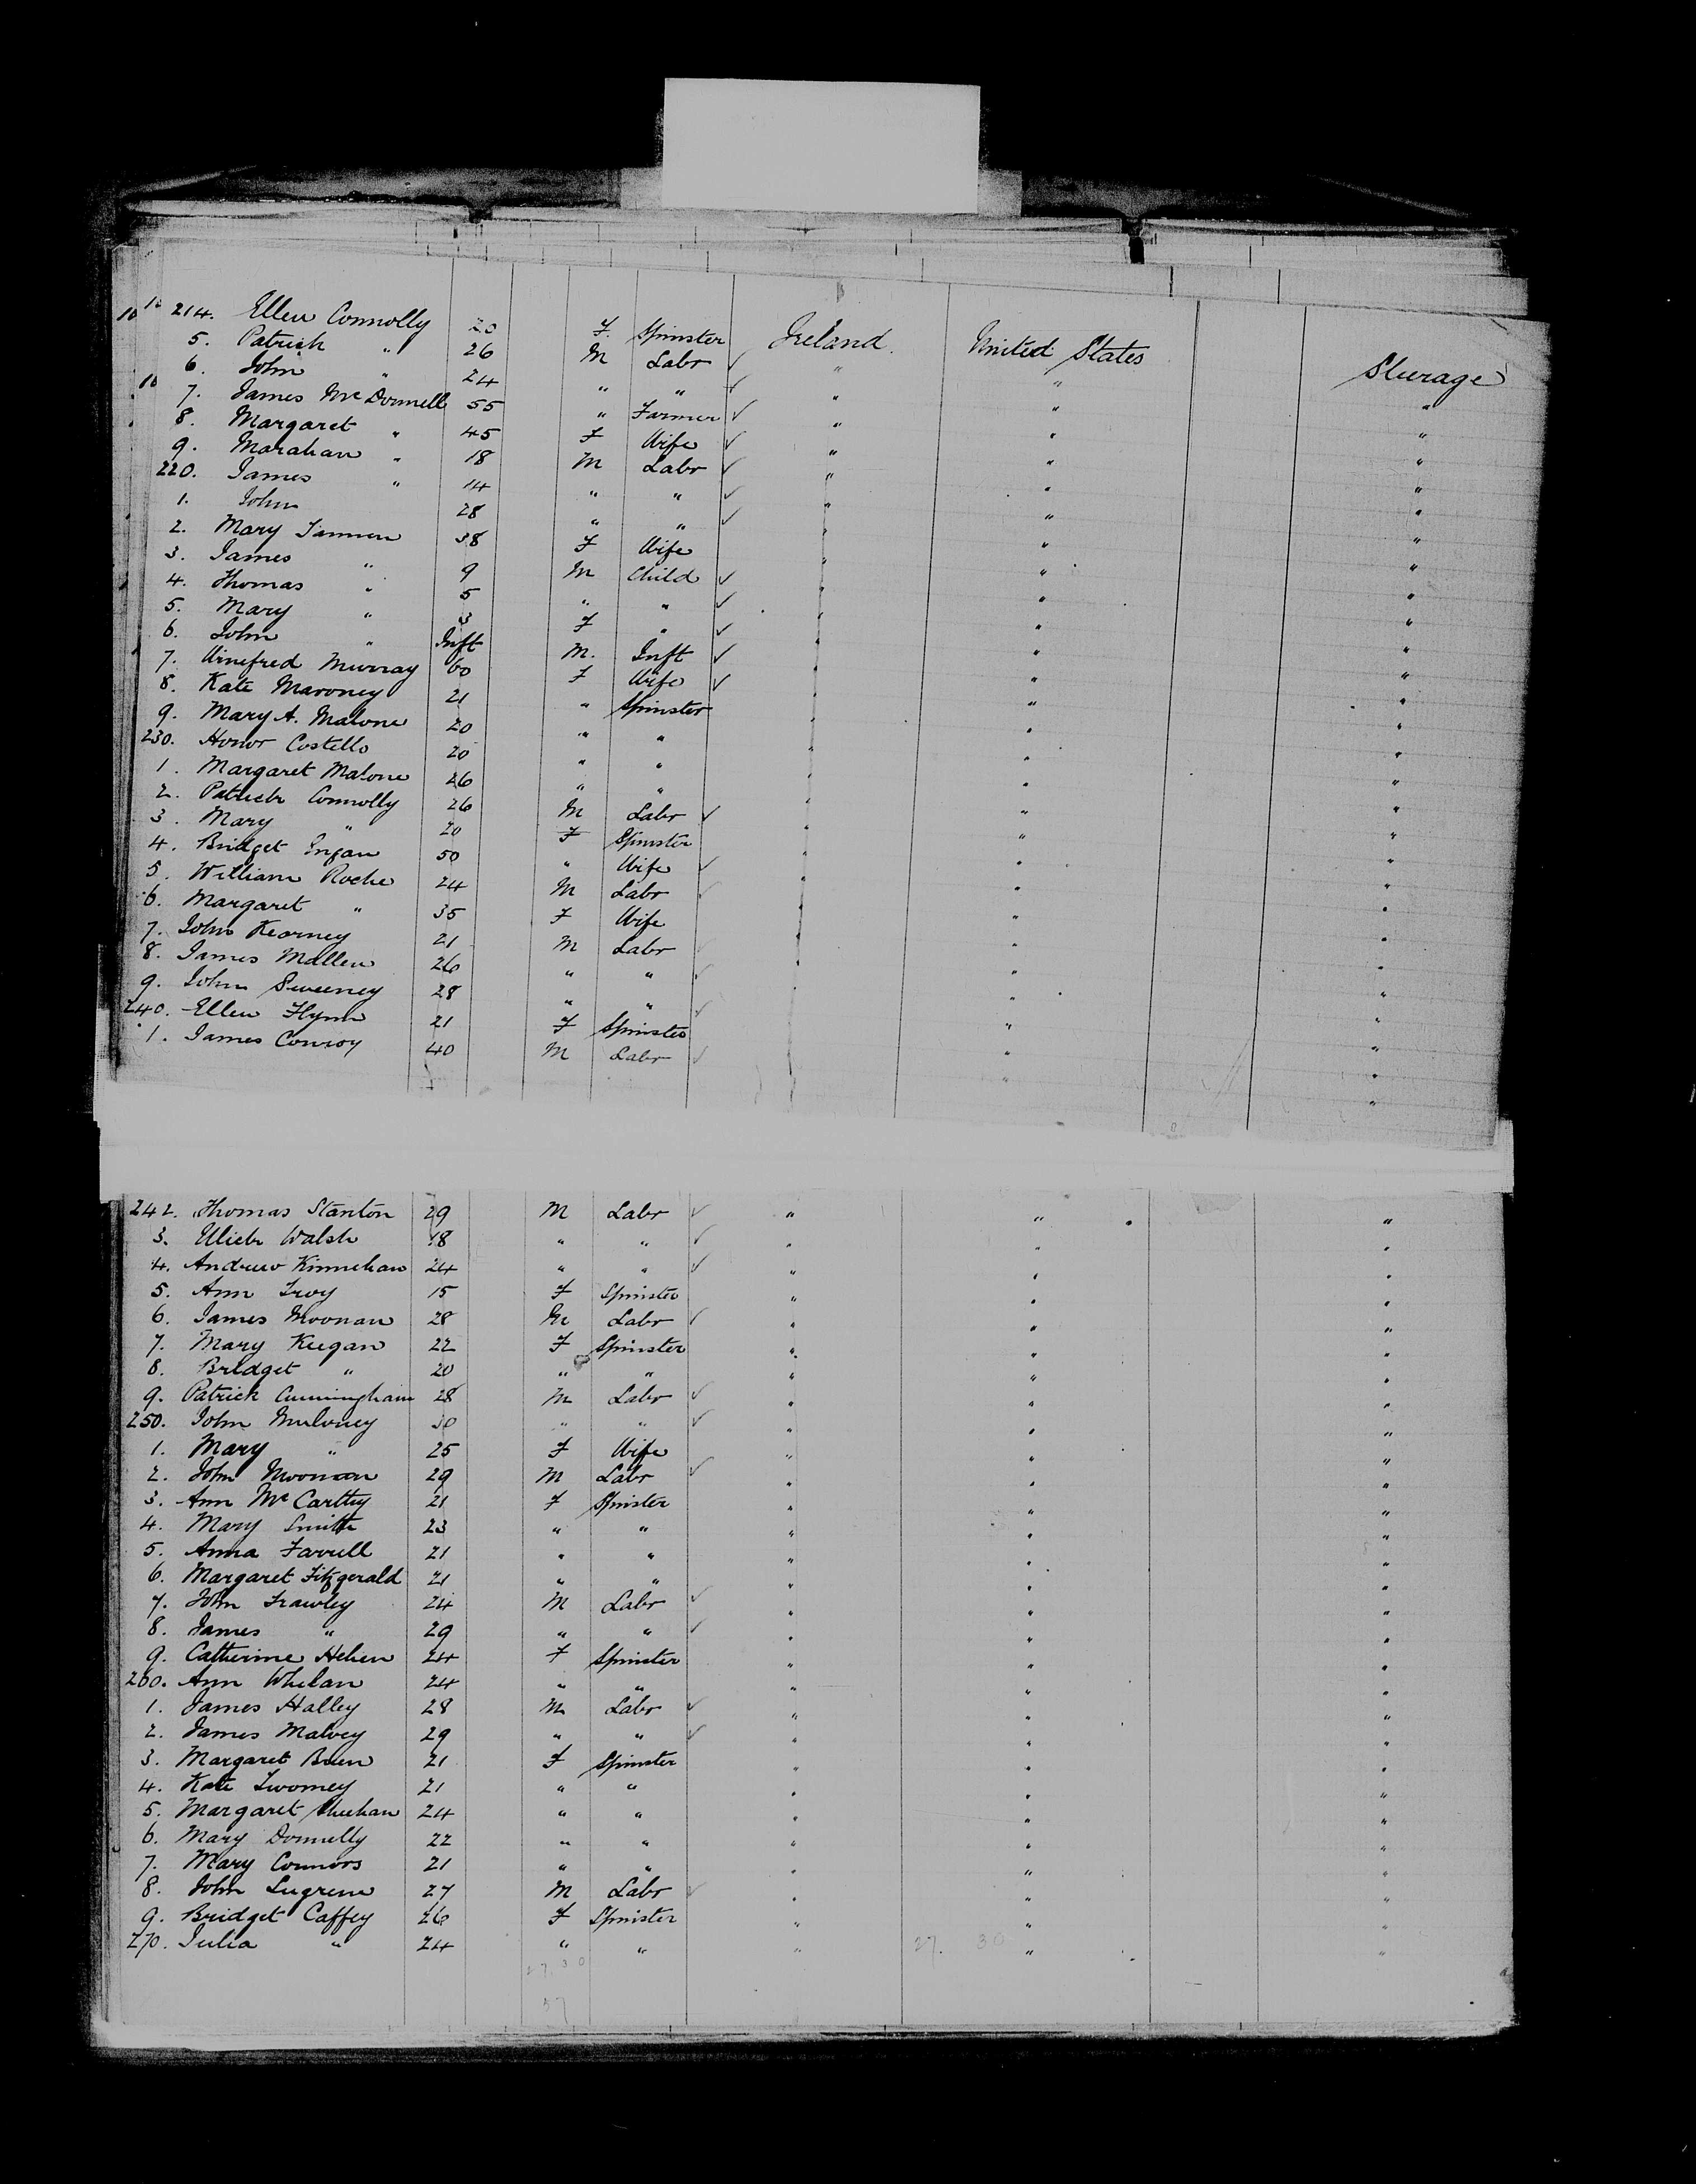 10 10 214. Ellen Connolly 20 F. Spinster Ireland. United States Steerage
5. Patrick " 26 M Labr ✓ " " "
6. John " 24 " " ✓ " " "
10 7. James McDonnell 55 " Farmer ✓ " " "
8. Margaret " 45 F Wife ✓ " " "
9. Marahan " 18 M Labr ✓ " " "
220. James " 14 " " ✓ " " "
1. John 28 " " ✓ " " "
2. Mary Tannen 38 F Wife " " "
3. James " 9 M Child ✓ " " "
4. Thomas " 5 " " ✓ " " "
5. Mary " 3 F " ✓ " " "
6. John " Inft M. Inft ✓ " " "
7. Winefred Murray 60 F Wife ✓ " " "
8. Kate Maroney 21 " Spinster " " "
9. Mary A. Malone 20 " " " " "
230. Honor Costello 20 " " " " "
1. Margaret Malone 26 " " " " "
2. Patrick Connolly 26 M Labr ✓ " " "
3. Mary " 20 F Spinster " " "
4. Bridget 50 " Wife ✓ " " "
5. William Roche 24 M Labr ✓ " " "
6. Margaret " 35 F Wife " " "
7. John Kearney 21 M Labr ✓ " " "
8. James Mallen 26 " " ✓ " " "
9. John Sweeney 28 " " ✓ " " "
240. Ellen Flynn 21 F Spinster " " "
1. James Conroy 40 M Labr ✓ " " "
242. Thomas Stanton 29 M Labr ✓ " " "
3. Ulick Walsh 18 " " ✓ " " "
4. Andrew Kinnehan 24 " " ✓ " " "
5. Ann Troy 15 F Spinster " " "
6. James Moonan 28 M Labr ✓ " " "
7. Mary Keegan 22 F Spinster " " "
8. Bridget " 20 " " " " "
9. Patrick Cunningham 28 M Labr ✓ " " "
250. John Mulvney 30 " " ✓ " " "
1. Mary " 25 F Wife " " "
2. John Moonan 29 M Labr ✓ " " "
3. Ann McCarthy 21 F Spinster " " "
4. Mary Smith 23 " " " " "
5. Anna Farrell 21 " " " " "
6. Margaret Fitzgerald 21 " " " " "
7. John Frawley 24 M Labr ✓ " " "
8. James " 29 " " ✓ " " "
9. Catherine Hehen 24 F Spinster " " "
260. Ann Whelan 24 " " " " "
1. James Halley 28 M Labr ✓ " " "
2. James Malvey 29 " " ✓ " " "
3. Margaret 21 F Spinster " " "
4. Kate Twomey 21 " " " " "
5. Margaret Sheehan 24 " " " " "
6. Mary Donnelly 22 " " " " "
7. Mary Connors 21 " " " " "
8. John Lugrene 27 M Labr ✓ " " "
9. Bridget Caffey 26 F Spinster " " "
270. Julia " 24 " " " 27. 30 " "
27.30
57